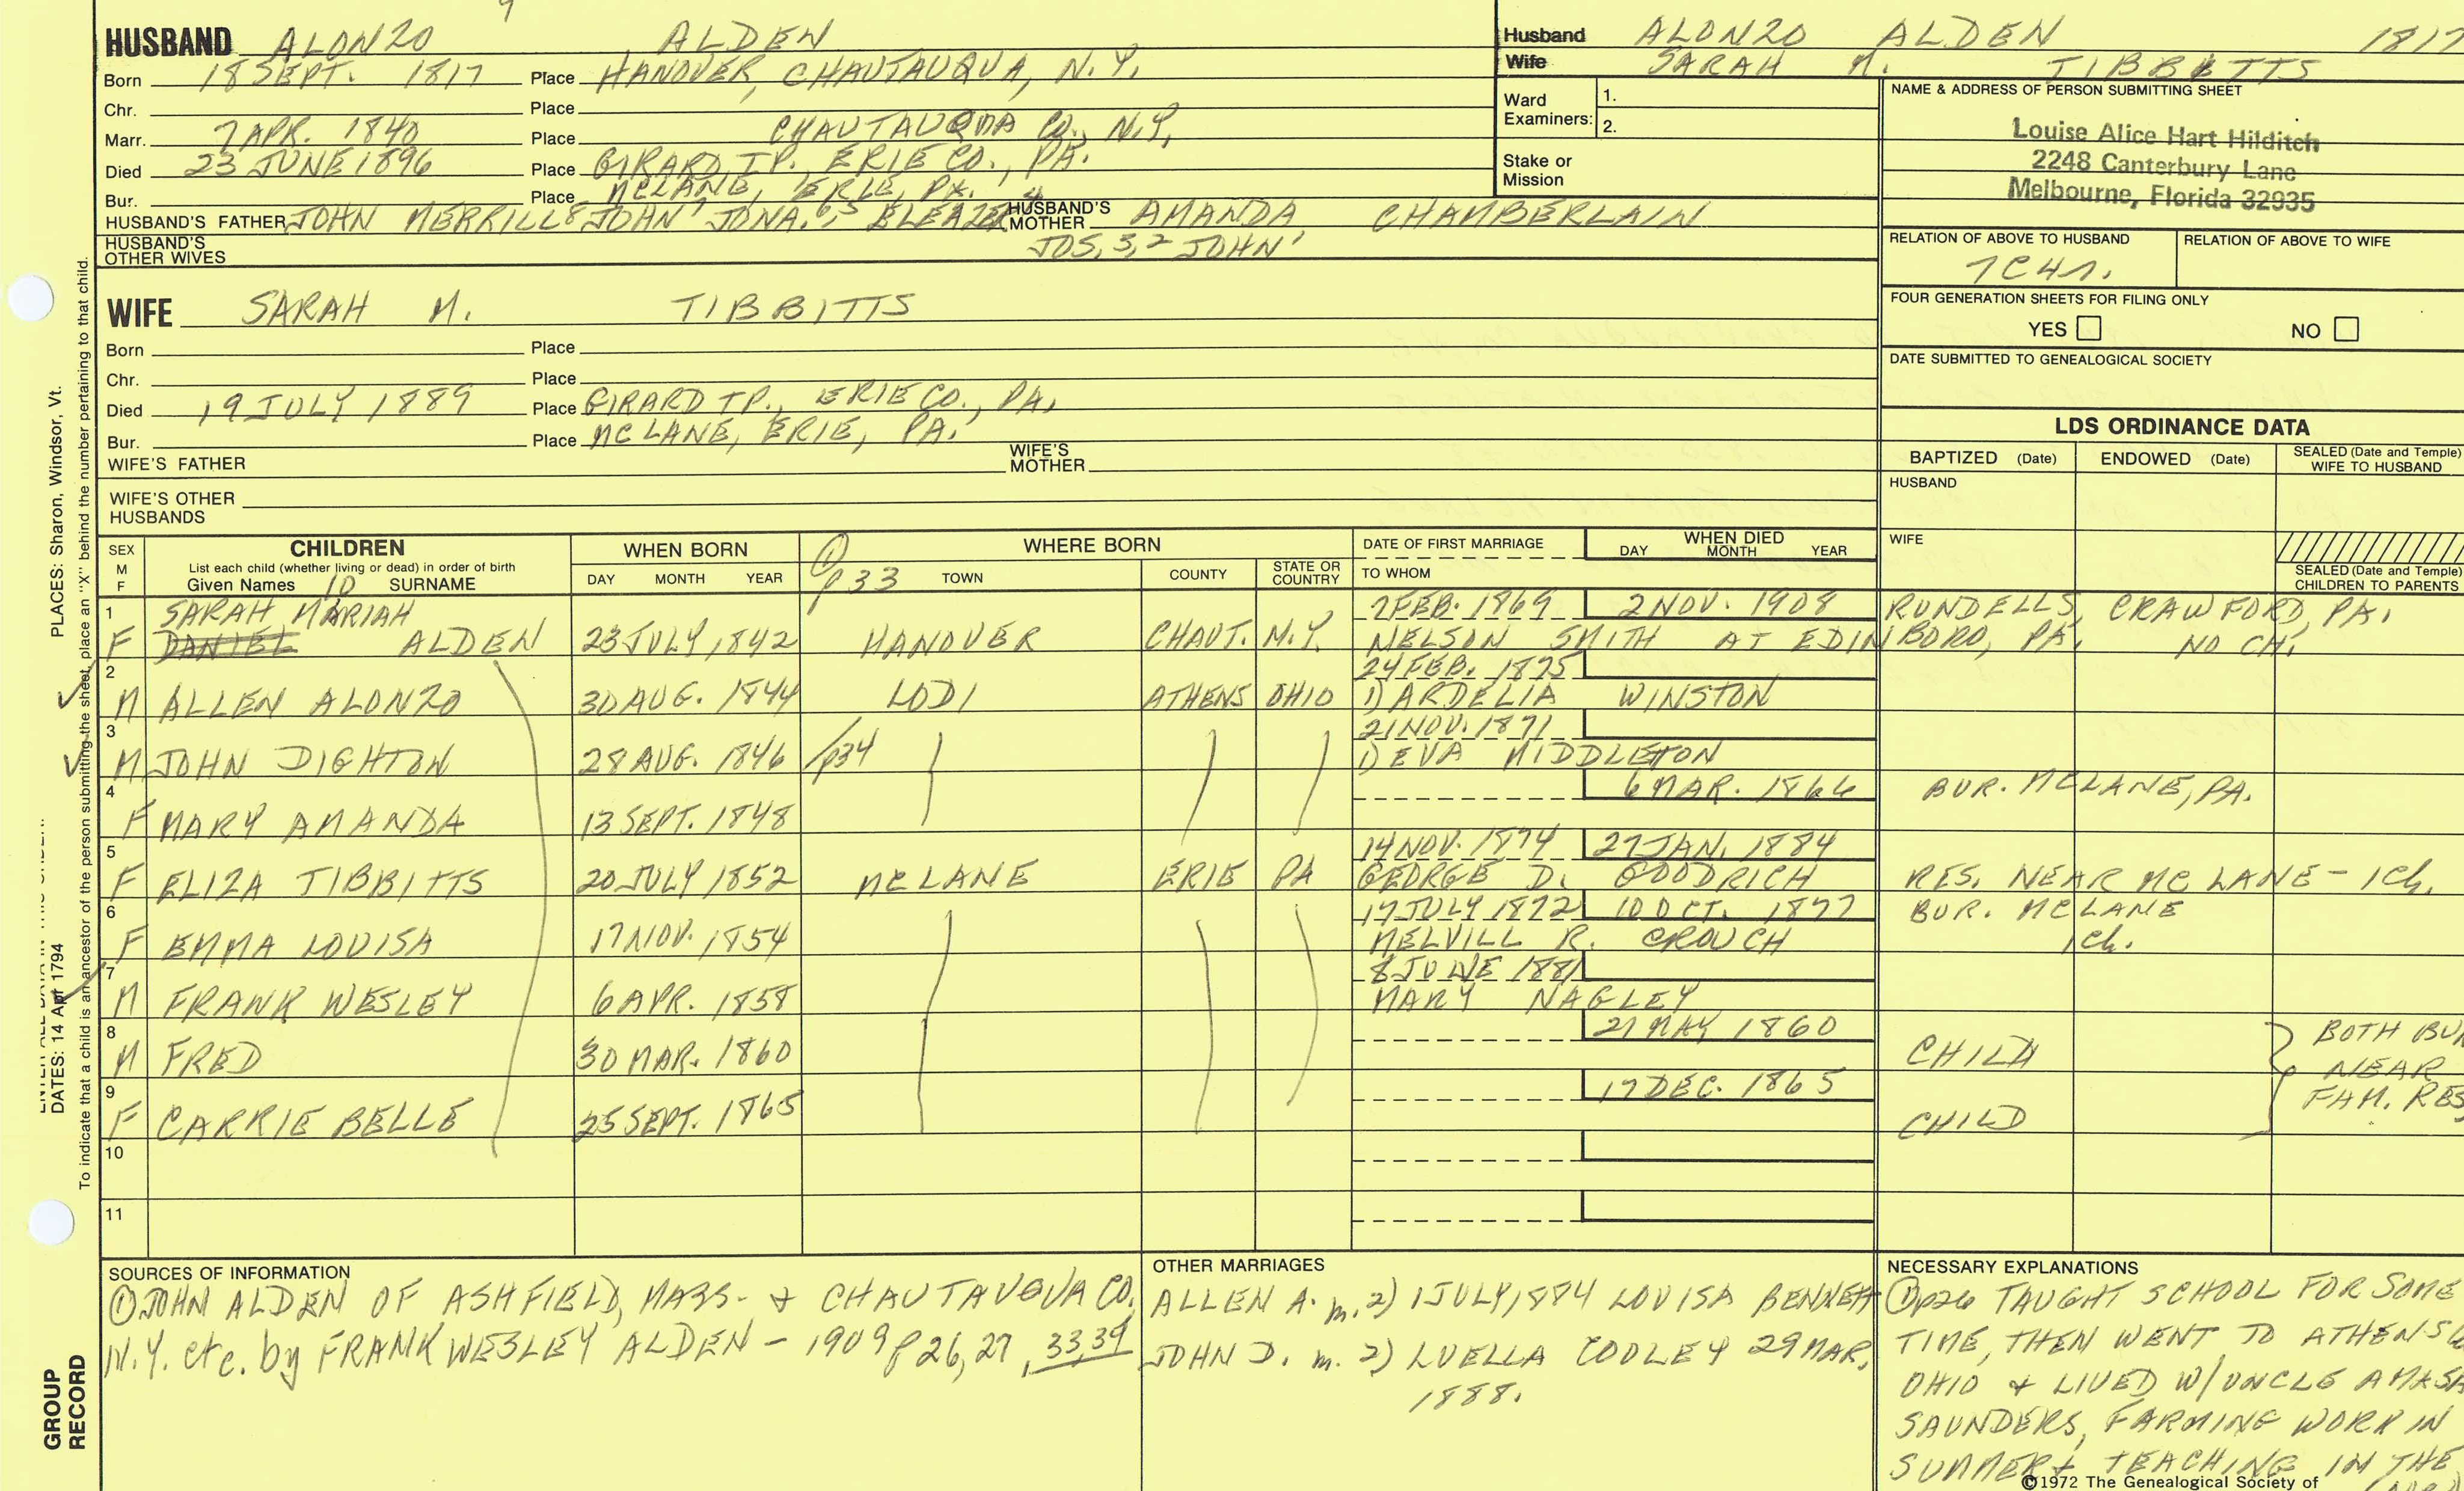 HUSBAND ALONZO ALDEN
Born 18 SEPT. 1817 Place HANOVER, CHAUTAUQUA, N.Y.
Chr. Place
Marr. 7 APR. 1840 Place CHAUTAUQUA CO., N.Y.
Died 23 JUNE 1896 Place GIRARD TP., ERIE CO., PA.
Bur. Place MCLANE, ERIE, PA.
HUSBAND'S FATHER JOHN MERRILL 8 JOHN 7 JONA. 6,5 ELEAZER 4 HUSBAND'S MOTHER AMANDA CHAMBERLAIN
HUSBAND'S OTHER WIVES JOS. 3,2 JOHN 1
WIFE SARAH M. TIBBITTS
Born Place
Chr. Place
Died 19 JULY 1889 Place GIRARD TP., ERIE CO., PA.
Bur. Place MCLANE, ERIE, PA.
WIFE'S FATHER WIFE'S MOTHER
WIFE'S OTHER HUSBANDS
Husband ALONZO ALDEN 1817
Wife SARAH M. TIBBITTS
Ward Examiners: 1.
2.
Stake or Mission
NAME & ADDRESS OF PERSON SUBMITTING SHEET
Louise Alice Hart Hilditch
2248 Canterbury Lane
Melbourne, Florida 32935
RELATION OF ABOVE TO HUSBAND RELATION OF ABOVE TO WIFE
7C4r.
FOUR GENERATION SHEETS FOR FILING ONLY
YES NO
DATE SUBMITTED TO GENEALOGICAL SOCIETY
LDS ORDINANCE DATA
BAPTIZED (Date) ENDOWED (Date) SEALED (Date and Temple) WIFE TO HUSBAND
HUSBAND
WIFE
SEALED (Date and Temple) CHILDREN TO PARENTS
SEX M F
CHILDREN
List each child (whether living or dead) in order of birth
Given Names 10 SURNAME
WHEN BORN
DAY MONTH YEAR
① p33
WHERE BORN
TOWN COUNTY STATE OR COUNTRY
DATE OF FIRST MARRIAGE
TO WHOM
WHEN DIED
DAY MONTH YEAR
1 SARAH MARIAH 2 FEB. 1869 2 NOV. 1908 RUNDELLS, CRAWFORD, PA.
F DANIEL ALDEN 23 JULY 1842 HANOVER CHAUT. N.Y. NELSON SMITH AT EDINBORO, PA. NO CH.
2 24 FEB. 1875
M ALLEN ALONZO 30 AUG. 1844 LODI ATHENS OHIO 1) ARDELIA WINSTON
3 21 NOV. 1871
M JOHN DIGHTON 28 AUG. 1846 p34 1) EVA MIDDLETON
4 6 MAR. 1866 BUR. MCLANE, PA.
F MARY AMANDA 13 SEPT. 1848
5 14 NOV. 1874 27 JAN. 1884
F ELIZA TIBBITTS 20 JULY 1852 MCLANE ERIE PA GEORGE D. GOODRICH RES. NEAR MC LANE - 1 Ch.
6 17 JULY 1872 10 OCT. 1877 BUR. MCLANE
F EMMA LOUISA 17 NOV. 1854 MELVILL R. CROUCH 1 Ch.
7 8 JUNE 1881
M FRANK WESLEY 6 APR. 1858 MARY NAGLEY
8 21 MAY 1860 BOTH BUR
M FRED 30 MAR. 1860 CHILD NEAR
9 17 DEC. 1865 FAM. RES
F CARRIE BELLE 25 SEPT. 1865 CHILD
10
11
SOURCES OF INFORMATION
① JOHN ALDEN OF ASHFIELD, MASS. & CHAUTAUQUA CO.
N.Y. etc. by FRANK WESLEY ALDEN - 1909 p 26, 27, 33, 34
OTHER MARRIAGES
ALLEN A. m. 2) 1 JULY 1884 LOUISA BENNETT
JOHN D. m. 2) LUELLA COOLEY 29 MAR.
1888.
NECESSARY EXPLANATIONS
① p26 TAUGHT SCHOOL FOR SOME
TIME, THEN WENT TO ATHENS
OHIO & LIVED W/UNCLE AMASA
SAUNDERS, FARMING WORK IN
SUMMER & TEACHING IN THE
©1972 The Genealogical Society of
PLACES: Sharon, Windsor, Vt.
DATES: 14 Apr 1794
To indicate that a child is an ancestor of the person submitting the sheet, place an "X" behind the number pertaining to that child.
GROUP
RECORD